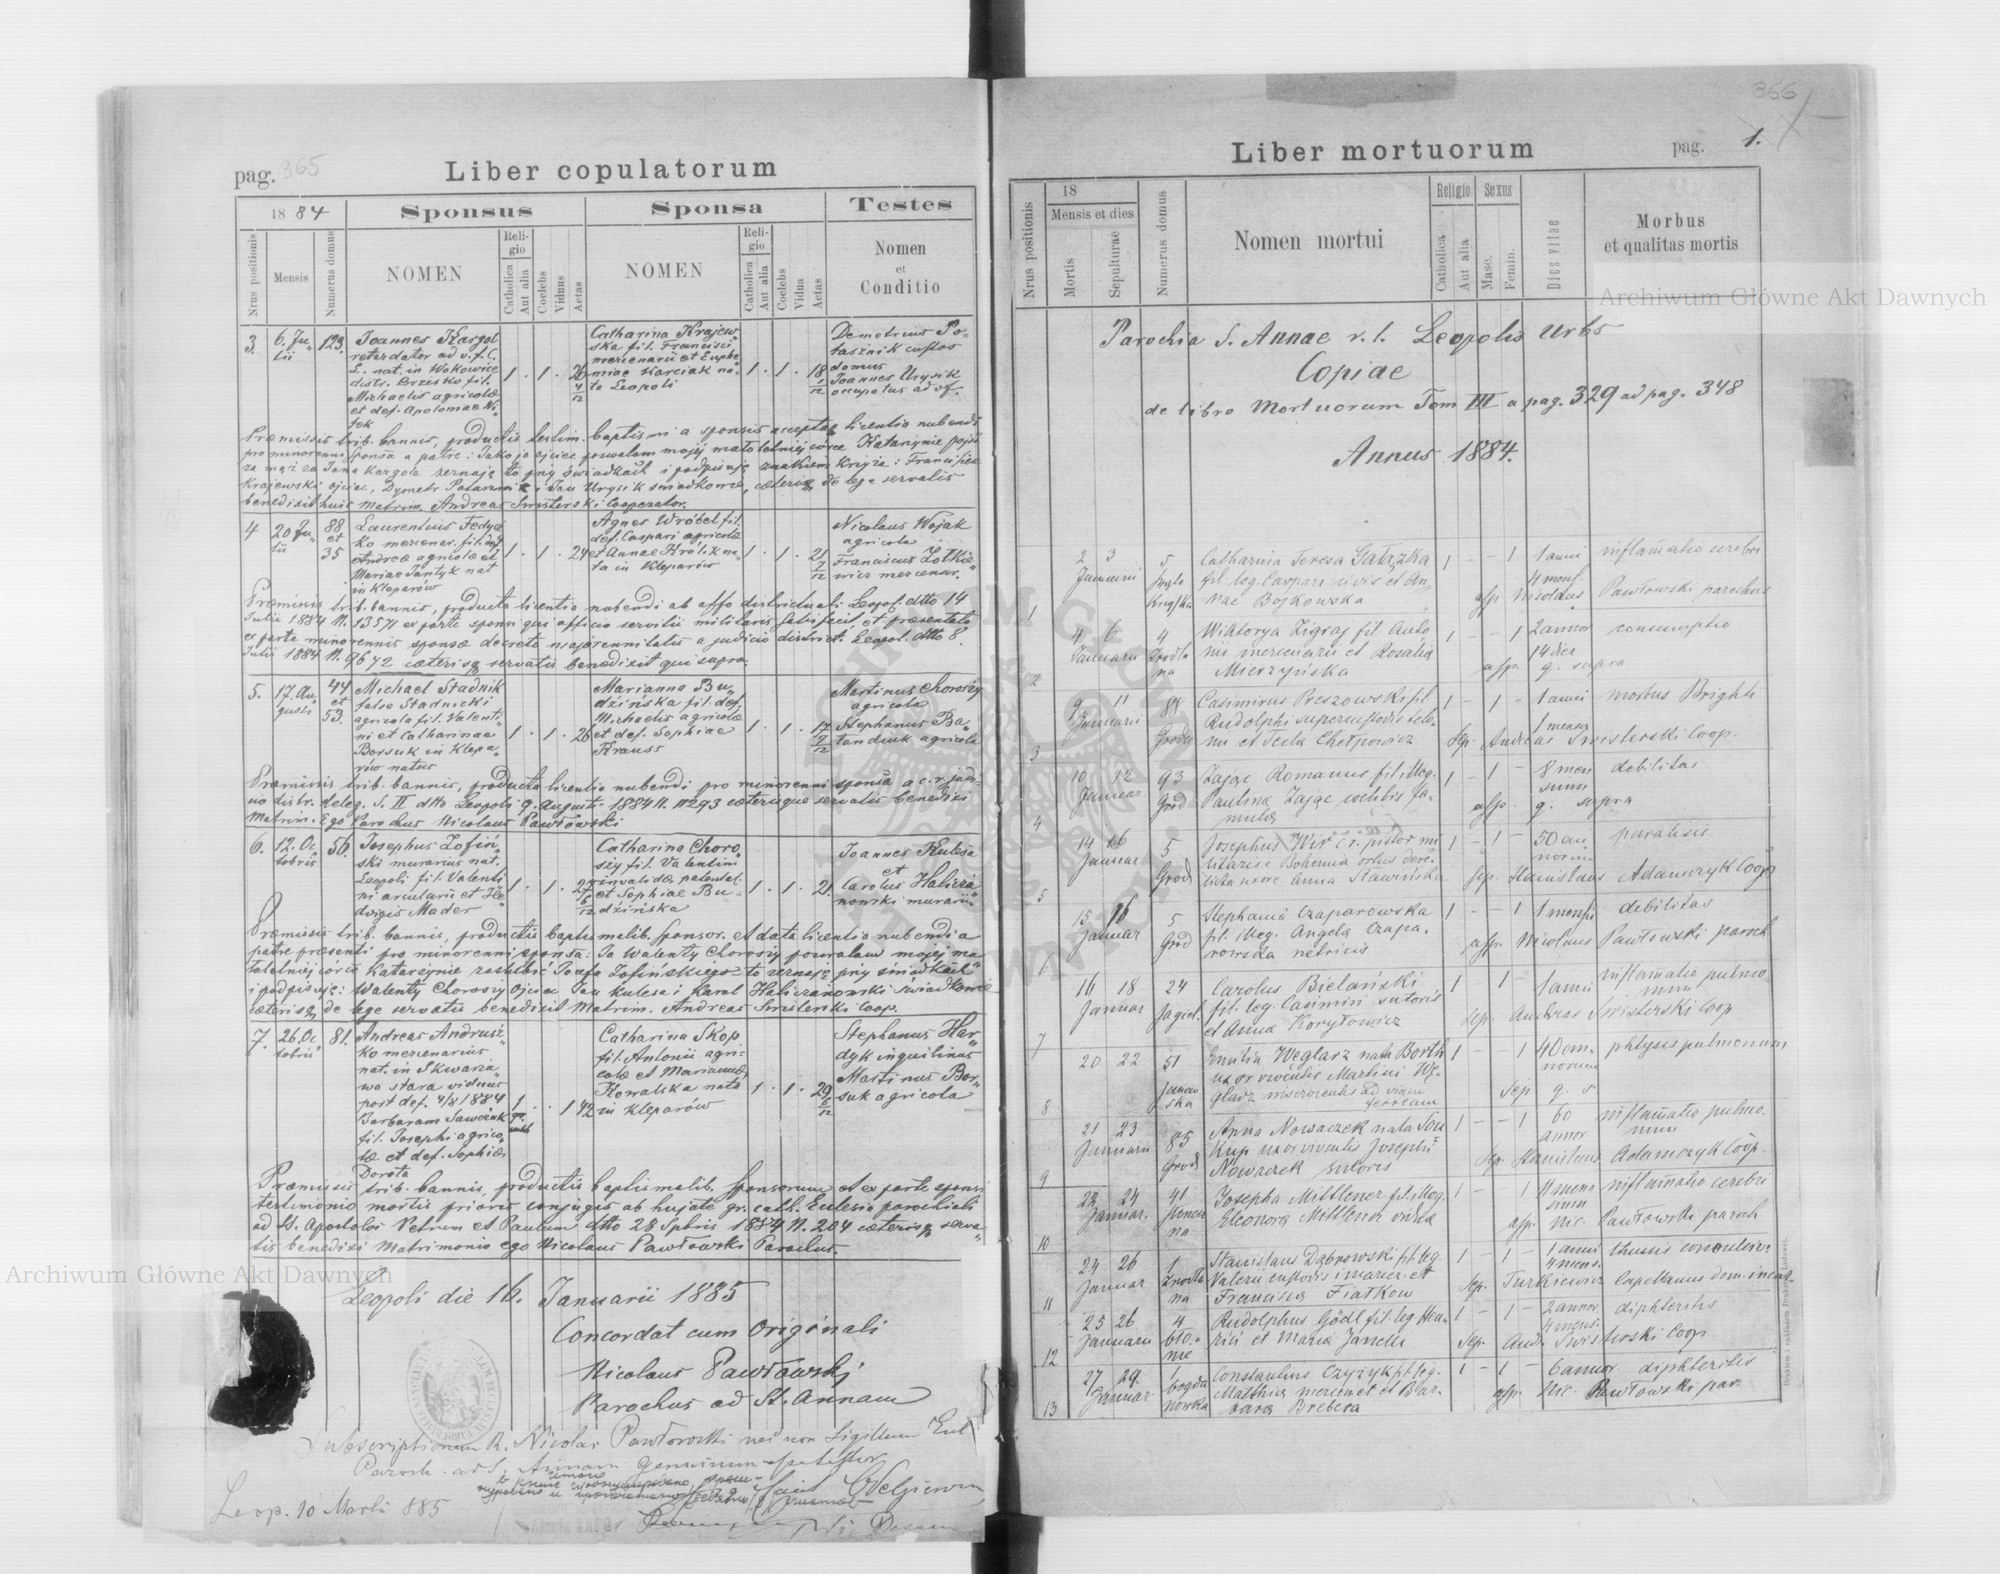 pag. 365
Liber copulatorum
1884
Sponsus
Sponsa
Testes
Nrus positionis
Mensis
Numerus domus
NOMEN
Religio
Catholica
Aut alia
Coelebs
Viduus
Aetas
NOMEN
Religio
Catholica
Aut alia
Coelebs
Vidua
Aetas
Nomen
et
Conditio
3. 6. Julii 129.
Joannes Kargol
ad v. f. C.
L. nat. in Wokowice
distr. Brzesko fil.
Michaelis agricolae
et def. Apoloniae Ni„
tek
1 . 1 . 26 4/12
Catharina Krajew„
ska fil. Francisci
mercenarii et Euphe
miae Karciak na„
ta Leopoli
1 . 1 . 18 1/12
Demetrius Po„
tasznik custos
domus
Joannes Urysik
occupatus ad vf.
Praemissis trib. bannis, productis testim. baptismi a sponsis accepta licentia nubendi
pro minorenni sponsa a patre: Jako jo ojciec pozwalam mojej małoletniej córce Katarzynie pojść
za mąż za Jana Kargola zeznaję to przy świadkach i podpisuję znakiem krzyża: Franciszek
Krajewski ojciec, Dymetr Potasznik i Jan Urysik świadkowie, caeterisq de lege servatis
benedixit huic Matrim. Andreas Swisterski Cooperator.
4 20 Julii 88 et 35
Laurentius Fedys
ko mercenar. fil. def
Andreae agricolae et
Mariae Jantyk nat
in Kleparów
1 . 1 . 24
Agnes Wróbel fil.
def. Caspari agricolae
et Annae Królik na„
ta in Kleparów
1 . 1 . 21 7/12
Nicolaus Wojak
agricola
Franciscus Żółkie„
wicz mercenar.
Praemissis trib. bannis, producta licentia nubendi ab offo districtuali Leopol. dtto 14
Julii 1884 N. 13571 ex parte sponsi qui officio servitii militaris satisfecit, et praesentato
ex parte minorennis sponsae decreto majorennitatis a judicio district. Leopol. dtto 8
Julii 1884 N. 9672 caeterisq servatis benedixit qui supra.
5. 17. Augusti 44 et 53.
Michael Stadnik
false Stadnicki
agricola fil. Valenti„
ni et Catharinae
Borsuk in Klepa„
rów natus
1 . 1 . 26
Marianna Bu„
dzińska fil. def.
Michaelis agricolae
et def. Sophiae
Krauss
1 . 1 . 17 7/12
Martinus Choroszy
agricola
Stephanus Ba„
tandiuk agricola
Praemissis trib. bannis, producta licentia nubendi pro minorenni sponsa a c. r. judi„
cio distr. deleg. S. II dtto Leopoli 9. Augusti 1884 N. 11293 caeterisque servatis benedixi
Matrim. Ego Parochus Nicolaus Pawłowski
6. 12. Octobris 56.
Josephus Zofiń„
ski murarius nat.
Leopoli fil. Valenti
ni arcularii et He„
dvigis Mader
1 . 1 . 27 6/12
Catharina Choro„
szy fil. Valentini
invalidae patental.
et Sophiae Bu„
dzińska
1 . 1 . 21
Joannes Kulesa
et
Carolus Halicza„
nowski murarii
Praemissis trib. bannis, productis baptismalib. sponsor. et data licentia nubendi a
patre praesenti pro minorenni sponsa: Ja Walenty Choroszy pozwalam mojej ma
łoletniej córce Katarzynie zaślubić Józefa Zofińskiego to zeznaję przy świadkach
i podpisuję: Walenty Choroszy Ojciec Jan Kulesa i Karol Haliczanowski świadkowie
caeterisq de lege servatis benedixit Matrim. Andreas Swisterski Coop.
7. 26. Octobris 81.
Andreas Andrusz„
ko mercenarius
nat. in Skwarza„
wa stara viduus
post def. 4/8 1884
Barbaram Sawczuk
fil. Josephi agrico„
lae et def. Sophiae
Dorota
1 . . 1 42
Catharina Skop
fil. Antonii agri„
colae et Mariannae
Kowalska nata
in Kleparów
1 . 1 . 29 6/12
Stephanus Har„
dyk inquilinus
Martinus Bor„
suk agricola
Praemissis trib. bannis, productis baptismalib. sponsorum et ex parte sponsi
testimonio mortis prioris conjugis ab hujate gr. cath. Ecclesia parochiali
ad SS. Apostolos Petrum et Paulum dtto 28 Sptbris 1884 N. 204 caeterisq serva„
tis benedixi Matrimonio ego Nicolaus Pawłowski Parochus.
Leopoli die 16. Januarii 1885
Concordat cum Originali
Nicolaus Pawłowski
Parochus ad St. Annam
Subscriptionem R. Nicolai Pawłowski nec non Sigillum Eccl
Paroch. ad S. Annam genuinum
Leop. 10 Martii 885
366
Liber mortuorum
pag. 1.
Nrus positionis
18
Mensis et dies
Mortis
Sepulturae
Numerus domus
Nomen mortui
Religio
Catholica
Aut alia
Sexus
Masc.
Femin.
Dies vitae
Morbus
et qualitas mortis
Parochia S. Annae r. l. Leopolis Urbs
Copiae
de libro Mortuorum Tom III a pag. 329 ad pag. 348
Annus 1884.
1 2 3 Januarii 5
Catharina Teresa Gałązka
fil. leg. Caspari civis et An„
nae Bojkowska
1 - - 1 1 anni 4 mens. inflamatio cerebri
assp. Nicolaus Pawłowski parochus
2 4 6 Januarii 4 Źródlana
Wiktorya Zigraj fil. Anto
nii mercenarii et Rosalia
Mierzyńska
1 - - 1 2 annor 14 dier consumptio
assp. q. supra
3 9 11 Januarii 88 Grodec
Casimirus Breszowski fil
Rudolphi supercustodis telo„
nii et Tecla Chełpowicz
1 - 1 - 1 anni 1 mensis morbus Brighti
Sep. Andreas Swisterski Coop.
4 10 12 Januar. 93 Grod
Zając Romanus fil. illeg.
Paulina Zając coelibis fa„
mula
1 - 1 - 8 mensium debilitas
assp. q. supra
5 14 16 Januar 5 Grod
Josephus Wir c. r. pistor mi
litaris e Bohemia ortus dere„
licta uxore Anna Sławińska
1 - 1 - 50 annorum paralisis
sep. Stanislaus Adamczyk Coop
6 15 16 Januar 5 Grod
Stephania Czaparowska
fil. illeg. Angela Czapa„
rowska netricis
1 - - 1 1 mensis debilitas
assp. Nicolaus Pawłowski paroch
7 16 18 Januar 24 Jagiel.
Carolus Bielański
fil. leg. Casimiri sutoris
et Anna Koryłowicz
1 - 1 - 1 anni inflamatio pulmo„
num
sep. Andreas Swisterski Coop
8 20 22 51 Janowska
Emilia Węglarz nata Borth
uxor viventis Martini Wę„
glarz inservientis ad viam
ferream
1 - - 1 40 annorum phtysis pulmonum
Sep q. s
9 21 23 Januarii 85 Grod
Anna Nowaczek nata Sou
kup uxor viventis Josephi
Nowaczek sutoris
1 - - 1 60 annor inflamatio pulmo.
num
Sep. Stanislaus Adamczyk Coop.
10 23 24 Januar. 41
Josepha Mittlener fil. illeg.
Eleonora Mittlener vidua
1 - - 1 11 mensium inflamatio cerebri
assp. Nic. Pawłowski paroch
11 24 26 Januar 1 Źródlana
Stanislaus Dąbrowski fil. leg.
Valerii custodis et
Francisca Ziatkow
1 - 1 - 1 anni 4 mens. thussis convulsiv:
Sep. Turkiewicz Capellanus dom. incar.
12 25 26 Januarii 4 błonie
Rudolphus Gödl fil. leg. Hen„
rici et Maria Janciu
1 - 1 - 2 annor. 4 mens. diphteritis
Sep. Andr. Swisterski Coop
13 27 29. Januar. 1 Bogdanowska
Constantius Czyżyk fil. leg.
Matthia mercen et et Bar„
bara Brebera
1 - 1 - 6 annor. diphteritis
assp. Nic. Pawłowski par.
Archiwum Główne Akt Dawnych
Archiwum Główne Akt Dawnych